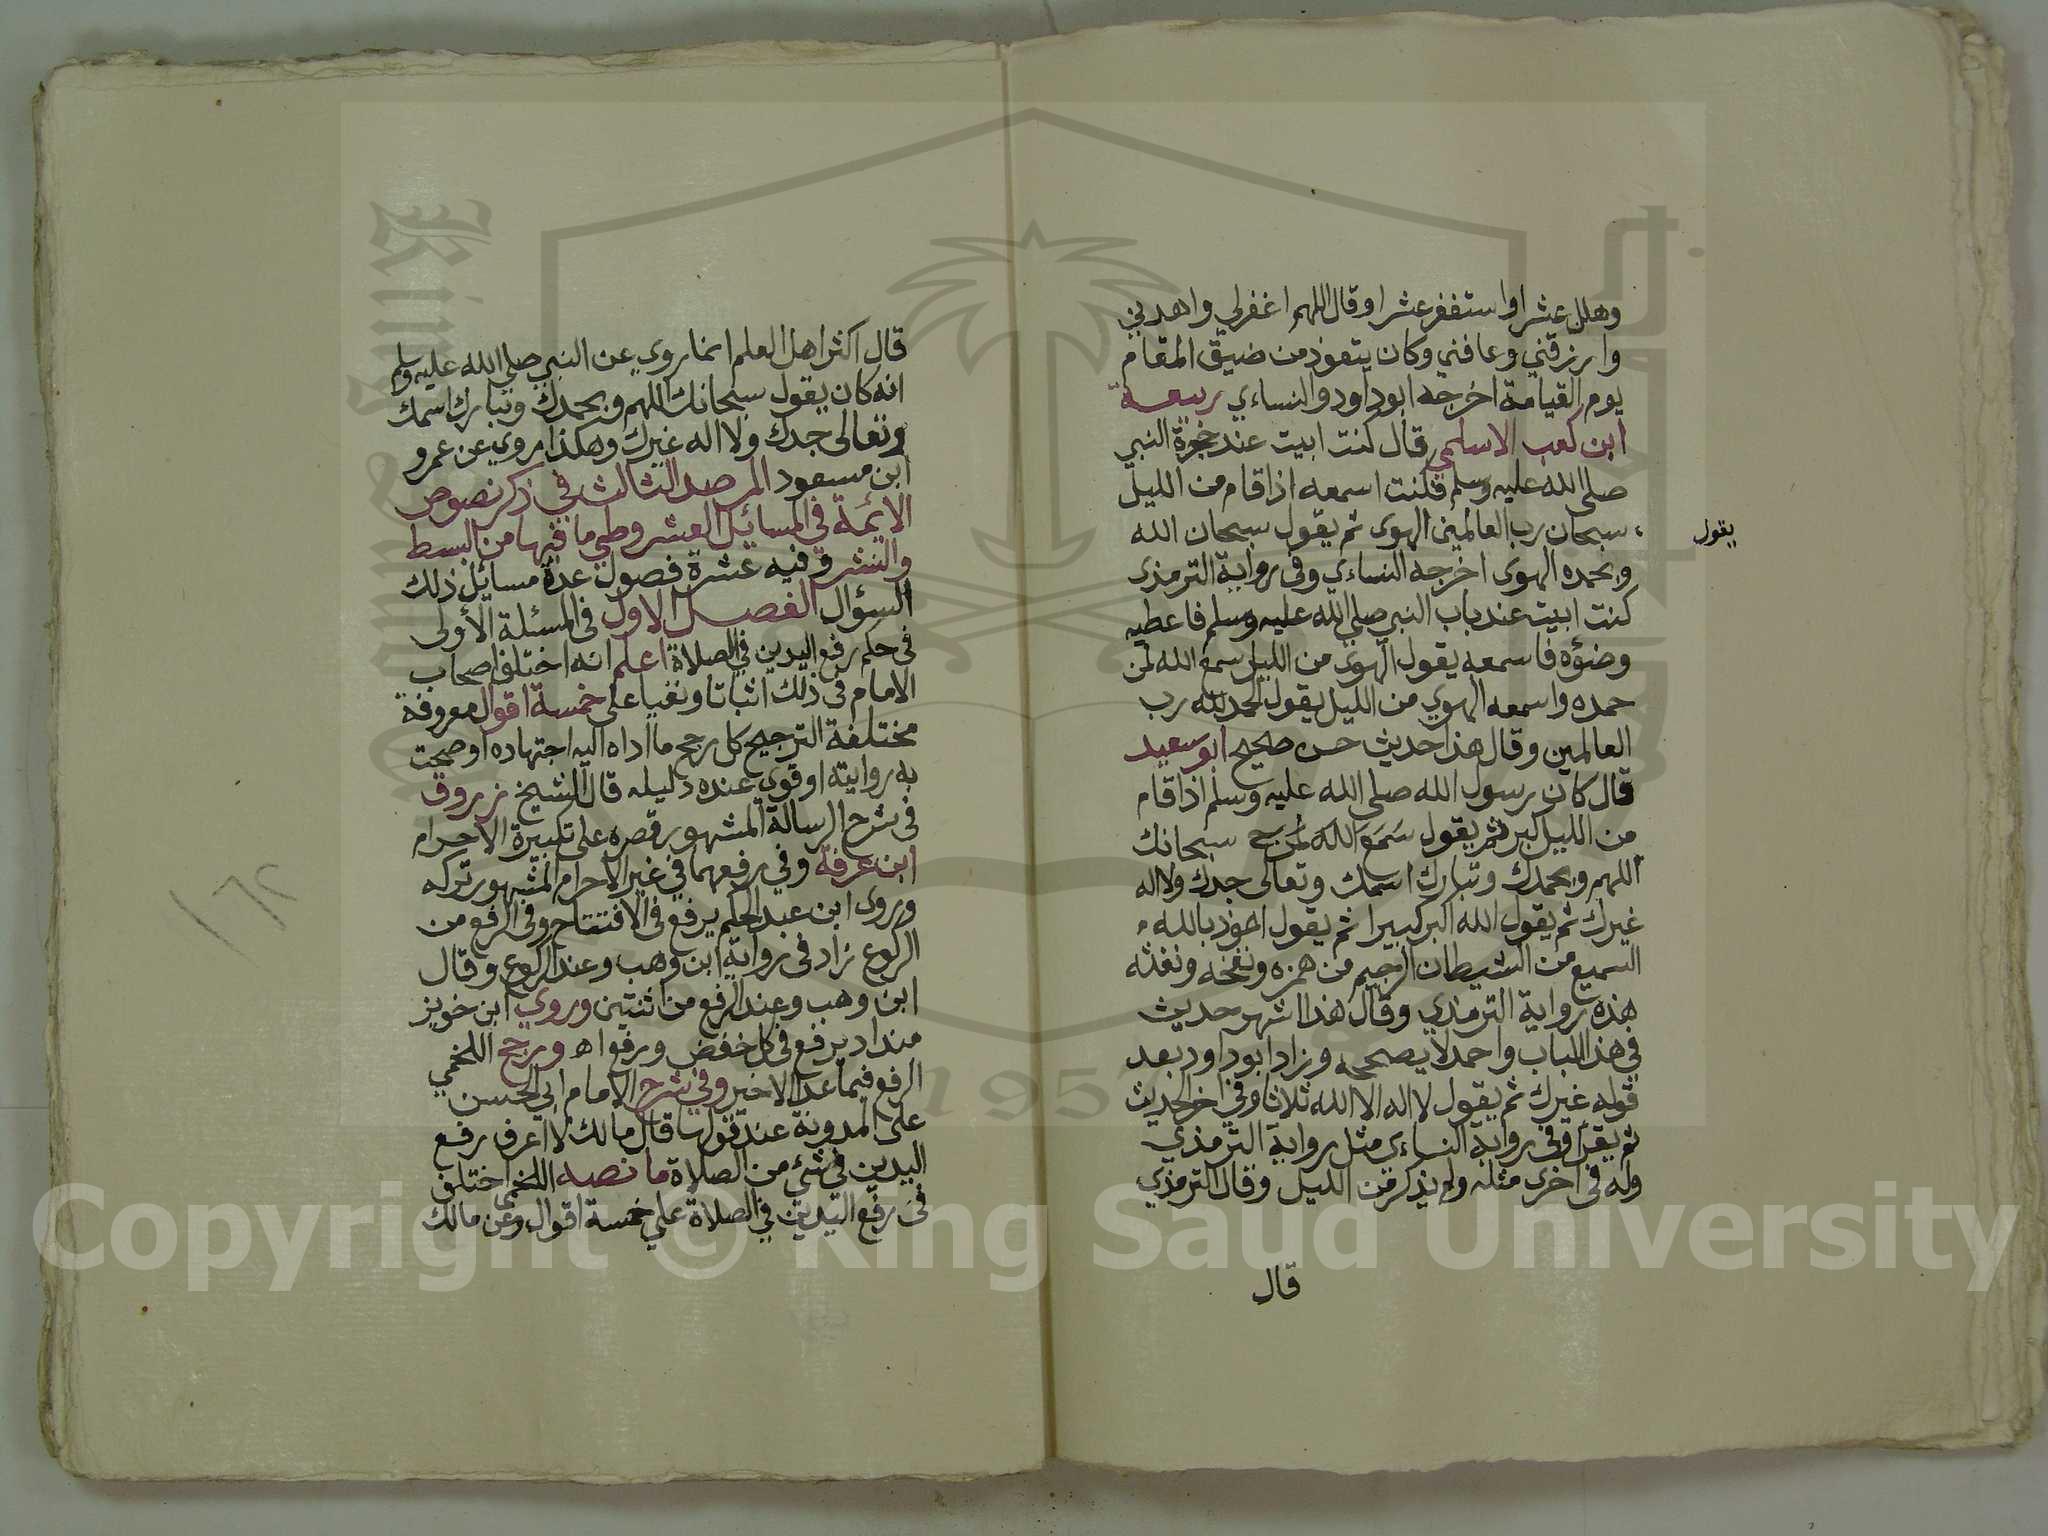 وهلل عشرا واستغفر عشرا وقال اللهم اغفرلي واهدني
وارزقني وعافني وكان يتعوذ من ضيق المقام
يوم القيامة اخرجه ابوداود والنساءي ربيعة
ابن كعب الاسلمي قال كنت ابيت عند حجرة النبي
صلى الله عليه وسلم فكنت اسمعه اذا قام من الليل
يقول
سبحان رب العالمين الهوى ثم يقول سبحان الله
وبحمده الهوى اخرجه النساءي وفي رواية الترمذي
كنت ابيت عند باب النبي صلى الله عليه وسلم فاعطيه
وضوءه فاسمعه يقول الهوى من الليل سمع الله لمن
حمده واسمعه الهوي من الليل يقول الحمد لله رب
العالمين وقال هذا حديث حسن صحيح ابو سعيد
قال كان رسول الله صلى الله عليه وسلم اذا قام
من الليل كبر ثم يقول سبحانك
اللهم وبحمدك وتبارك اسمك وتعالى جدك ولا اله
غيرك ثم يقول الله اكبر كبيرا ثم يقول اعوذ بالله
السميع من الشيطان الرجيم من همزه ونفخه ونفثه
هذه رواية الترمذي وقال هذا اشهر حديث
في هذا الباب واحمد لا يصححه وزاد ابو داود بعد
قوله غيرك ثم يقول لا اله الا الله ثلاثا وفي اخر الحديث
ثم يقرا وفي رواية النساءى مثل رواية الترمذي
وله في اخرى مثله ولم يذكر من الليل وقال الترمذي
قال
قال اكثر اهل العلم انما روي عن النبي صلى الله عليه وسلم
انه كان يقول سبحانك اللهم وبحمدك وتبارك اسمك
وتعالى جدك ولا اله غيرك وهكذا روي عن عمر و
ابن مسعود المرصد الثالث في ذكر نصوص
الايمة في المسائل العشر وطي ما فيها من البسط
والنشر وفيه عشرة فصول عدة مسائل ذلك
السؤال الفصل الاول في المسئلة الأولى
في حكم رفع اليدين في الصلاة اعلم انه اختلف اصحاب
الامام في ذلك اثباتا ونفيا على خمسة اقوال معروفة
مختلفة الترجيح كل رجح ما اداه اليه اجتهاده او صحت
به روايته او قوي عنده دليله قال الشيخ زروق
في شرح الرسالة المشهور قصره على تكبيرة الاحرام
ابن عرفة وفي رفعهما في غير الاحرام المشهور تركه
وروى ابن عبد الحكم يرفع في الافتتاح وفي الرفع من
الركوع زاد في رواية ابن وهب وعند الركوع وقال
ابن وهب وعند الرفع من اثنتين وروي ابن خويز
منداد يرفع في كل خفض ورفع اه ورجح اللخمي
الرفع فيما عدا الاخير وفي شرح الامام ابي الحسن
على المدونة عند قولها قال مالك لا اعرف رفع
اليدين في شئ من الصلاة ما نصه اللخمي اختلف
في رفع اليدين في الصلاة على خمسة اقوال فعن مالك
١٦٢
Copyright © King Saud University
1957